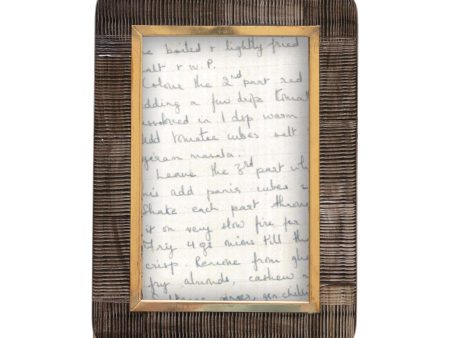 boiled & lightly fried
salt & w.P.
Colour the 2nd part red
adding a few drops tomat
dissolved in 1 dsp warm
add tomatoe cubes salt
garam masala.
Leave the 3rd part wh
add panir cubes
Shake each part throu
it on very slow fire for
Fry 4 oz onions till th
crisp. Remove from ghe
fry almonds, cashew n